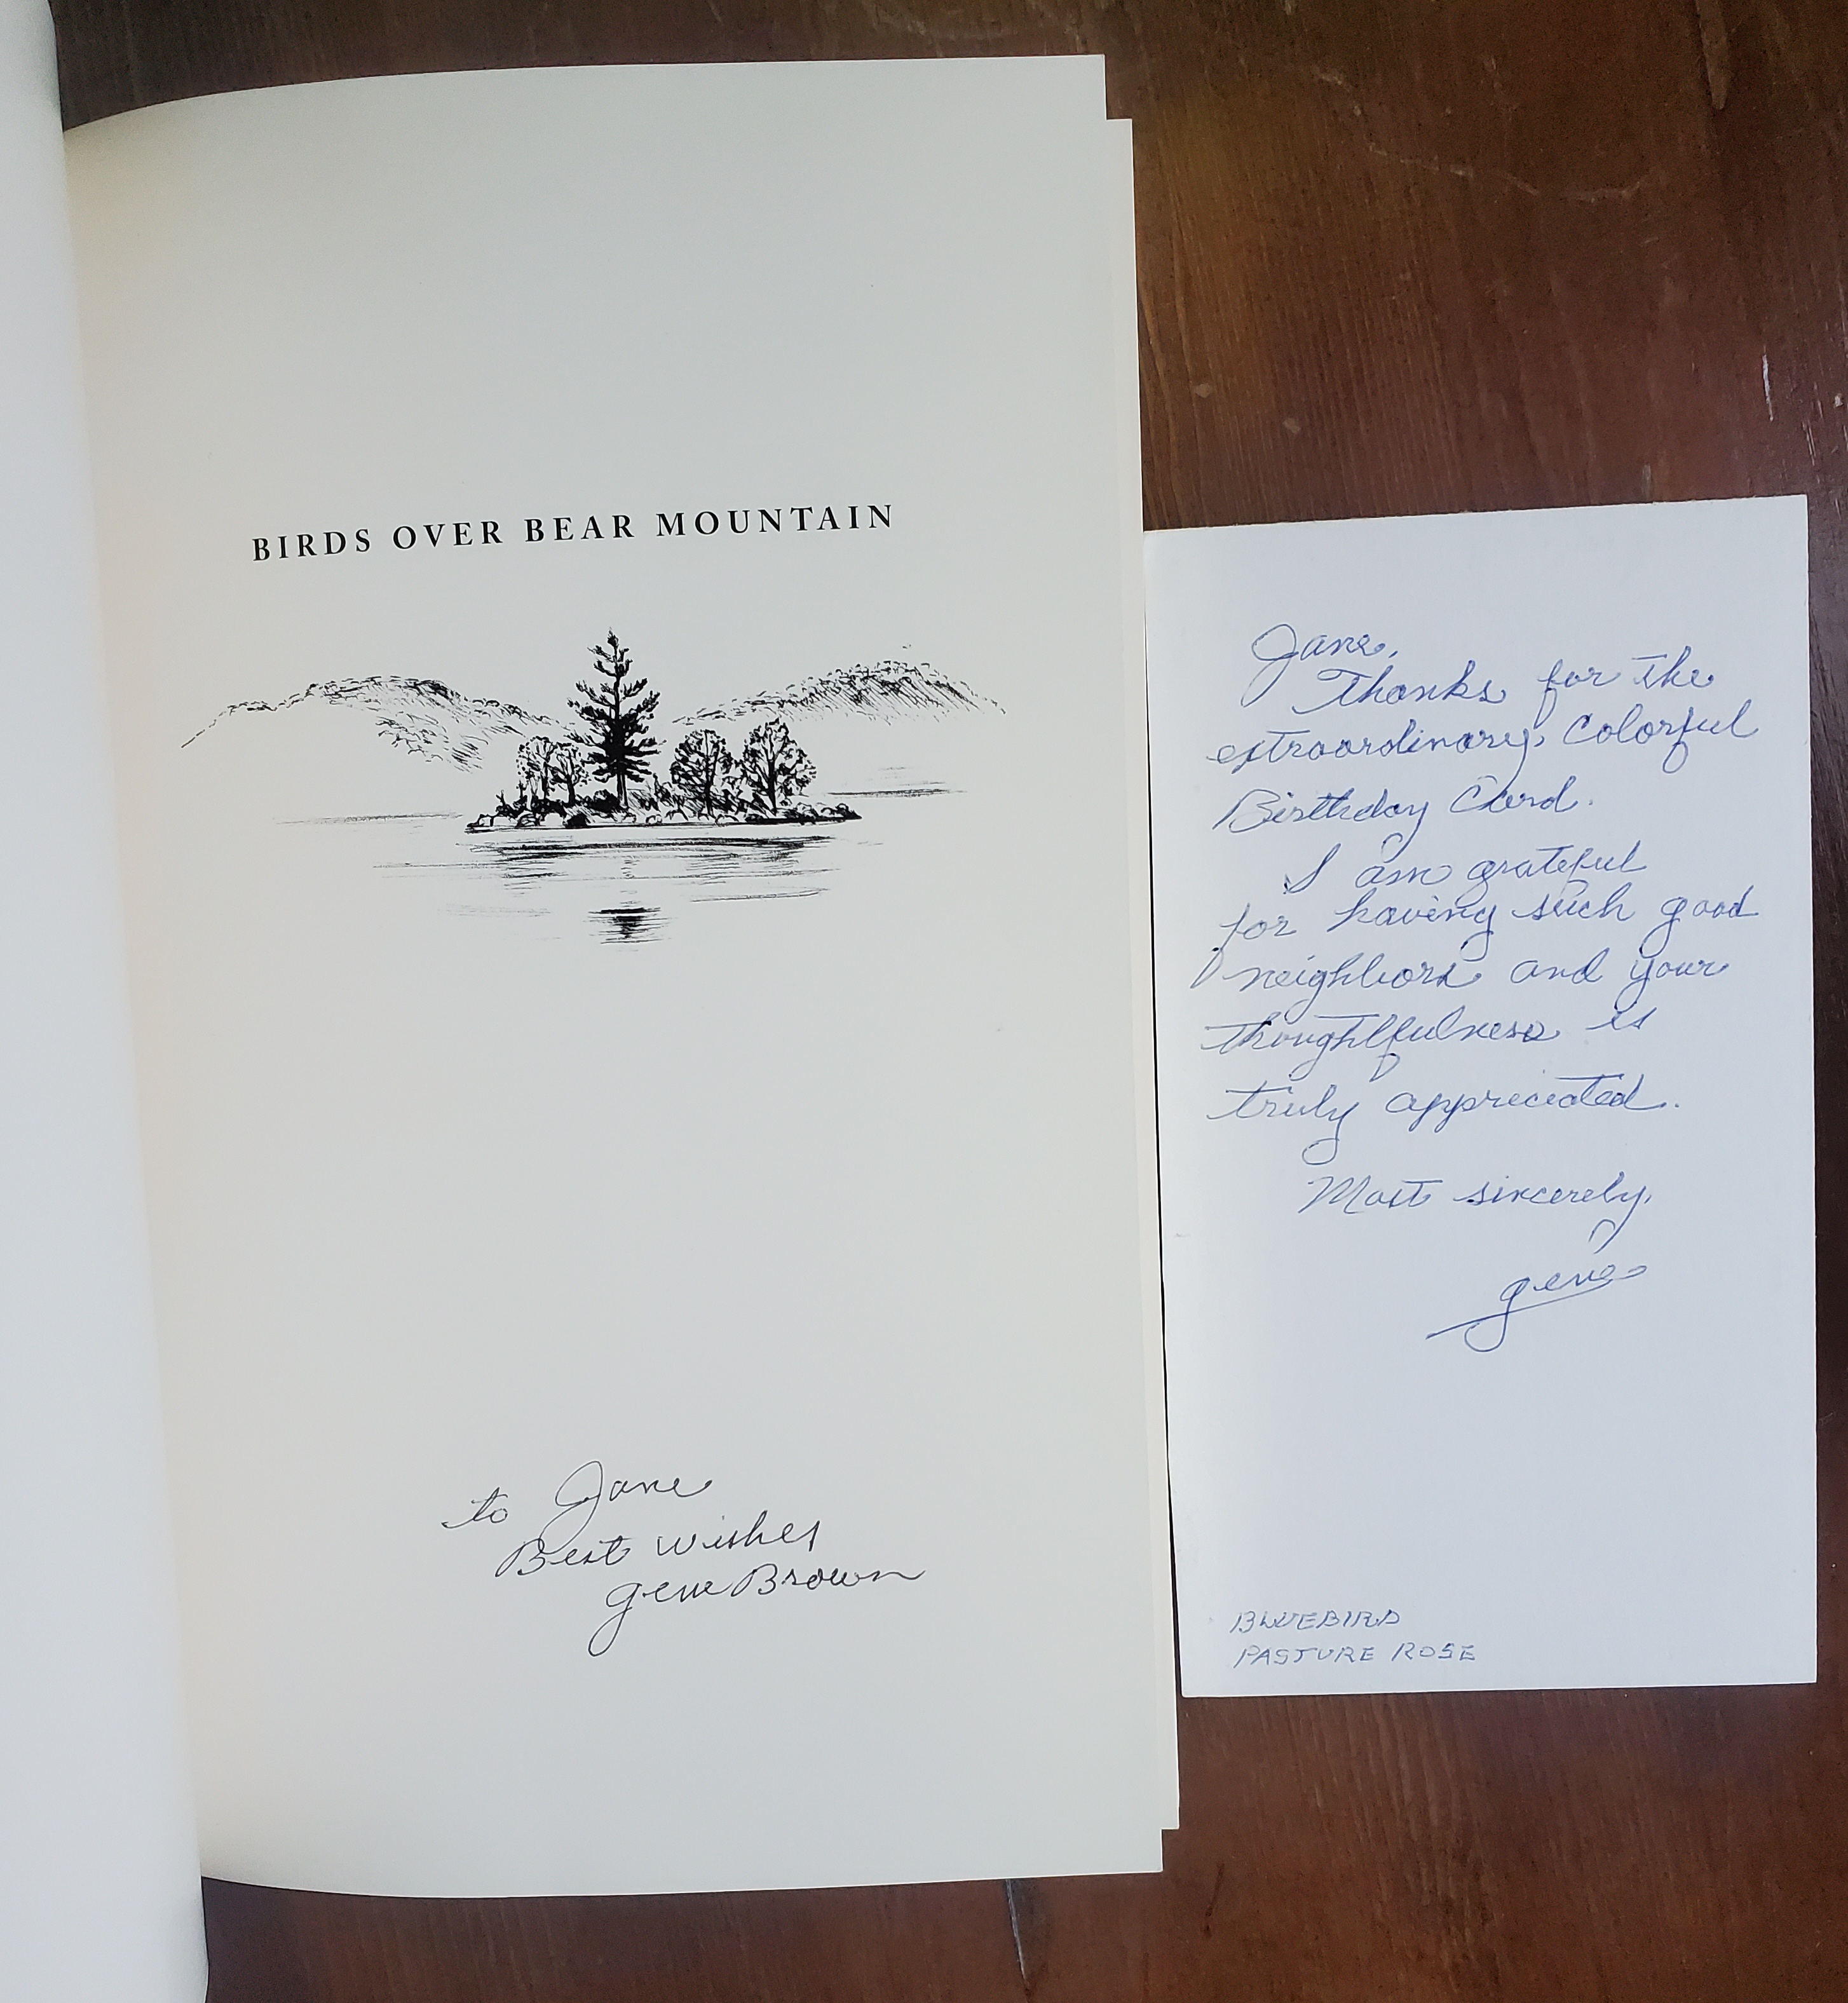 BIRDS OVER BEAR MOUNTAIN
to Jane
Best wishes
gene Brown
Jane,
Thanks for the
extraordinary, Colorful
Birthday Card.
I am grateful
for having such good
neighbors and your
thoughtfulness is
truly appreciated.
Most sincerely,
gene
BLUEBIRD
PASTURE ROSE